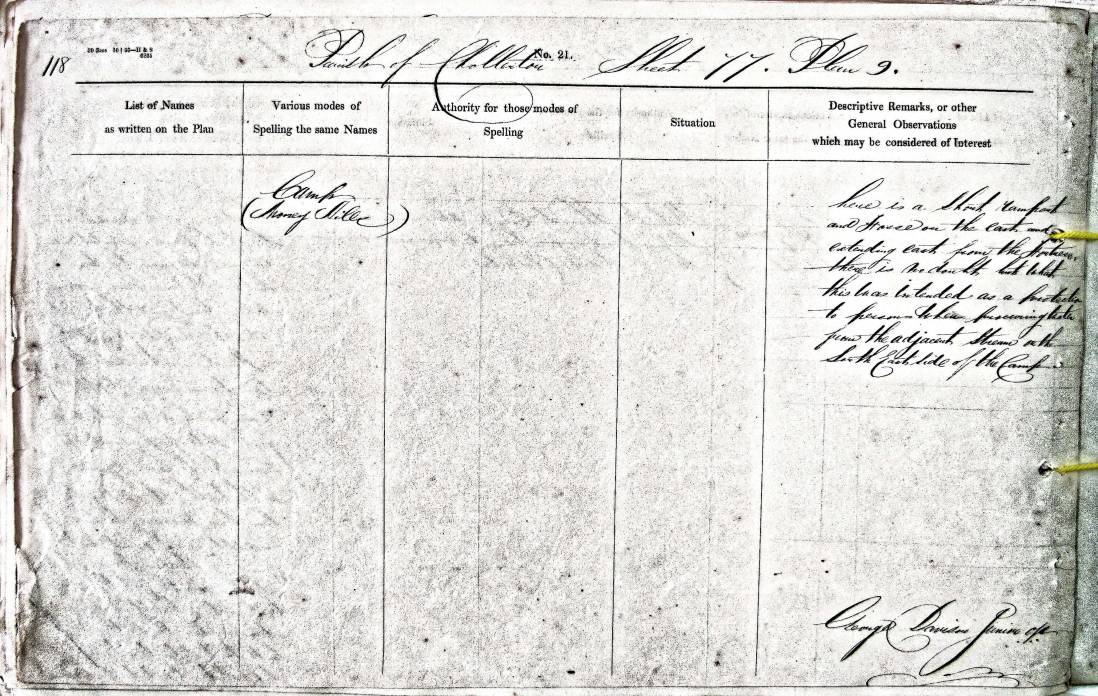 118
No. 21.
Parish of Chollerton Sheet 77. Plan 9.
List of Names
as written on the Plan
Various modes of
Spelling the same Names
Authority for those modes of
Spelling
Situation
Descriptive Remarks, or other
General Observations
which may be considered of Interest
Camp
(Money Hills)
here is a Short rampart
and fosse on the east end
extending east from the fortress,
there is no doubt but that
this was intended as a protection
to persons when procuring water
from the adjacent Stream on the
South East side of the Camp
George Davison Junior